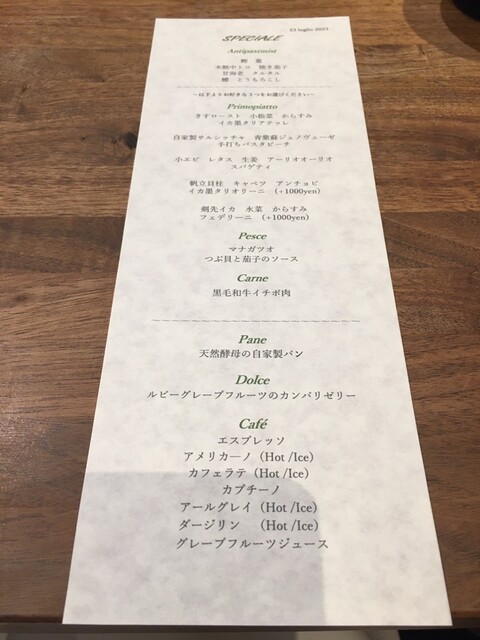 13 luglio 2023
SPECIALE
Antipastomist
鮑 葉
本鮪中トロ 焼き茄子
甘海老 タルタル
鱧 とうもろこし
~以下よりお好きな1つをお選びください~
Primopiatto
きすロースト 小松菜 からすみ
イカ墨タリアテッレ
自家製サルシッチャ 青紫蘇ジェノヴェーゼ
手打ちパスタピーチ
小エビ レタス 生姜 アーリオオーリオ
スパゲティ
帆立貝柱 キャベツ アンチョビ
イカ墨タリオリーニ (+1000yen)
剣先イカ 水菜 からすみ
フェデリーニ (+1000yen)
Pesce
マナガツオ
つぶ貝と茄子のソース
Carne
黒毛和牛イチボ肉
Pane
天然酵母の自家製パン
Dolce
ルビーグレープフルーツのカンパリゼリー
Café
エスプレッソ
アメリカーノ (Hot /Ice)
カフェラテ (Hot /Ice)
カプチーノ
アールグレイ (Hot /Ice)
ダージリン (Hot /Ice)
グレープフルーツジュース